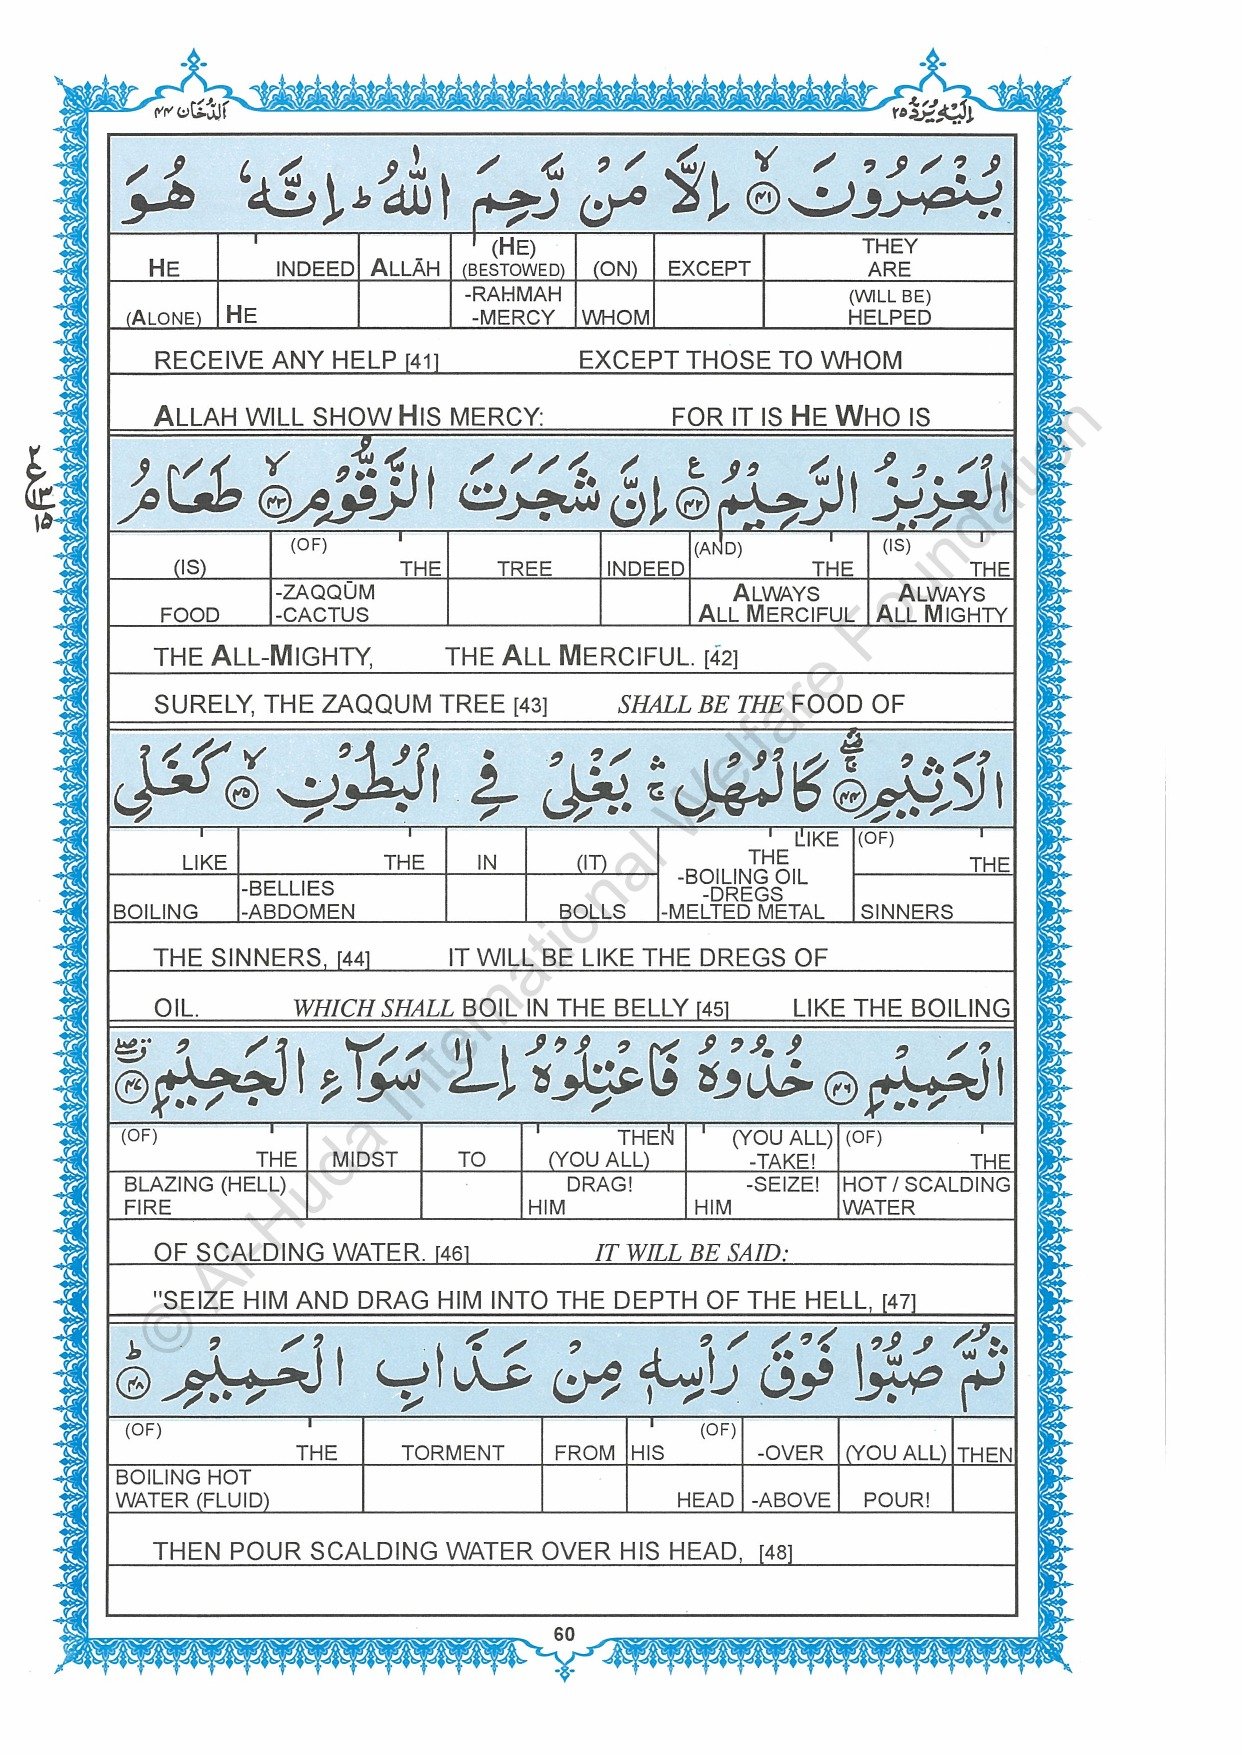 اَلدُّخَان ۴۴
اِلَيْهِ يُرَدُّ ۲۵
يُنْصَرُوْنَ ۙ﴿۴۱﴾ اِلَّا مَنْ رَّحِمَ اللّٰهُ ؕ اِنَّهٗ هُوَ
HE INDEED ALLĀH (HE) (BESTOWED) (ON) EXCEPT THEY ARE
(ALONE) HE -RAHMAH -MERCY WHOM (WILL BE) HELPED
RECEIVE ANY HELP [41] EXCEPT THOSE TO WHOM
ALLAH WILL SHOW HIS MERCY: FOR IT IS HE WHO IS
الْعَزِيْزُ الرَّحِيْمُ ﴿۴۲﴾ع اِنَّ شَجَرَتَ الزَّقُّوْمِ ۙ﴿۴۳﴾ طَعَامُ
۲ ع ۱۳ ۱۵
(IS) (OF) THE TREE INDEED (AND) THE (IS) THE
FOOD -ZAQQŪM -CACTUS ALWAYS ALL MERCIFUL ALWAYS ALL MIGHTY
THE ALL-MIGHTY, THE ALL MERCIFUL. [42]
SURELY, THE ZAQQUM TREE [43] SHALL BE THE FOOD OF
الْاَثِيْمِ ﴿۴۴﴾ كَالْمُهْلِ ۛۚ يَغْلِيْ فِي الْبُطُوْنِ ۙ﴿۴۵﴾ كَغَلْيِ
LIKE THE IN (IT) LIKE THE (OF) THE
BOILING -BELLIES -ABDOMEN BOLLS -BOILING OIL -DREGS -MELTED METAL SINNERS
THE SINNERS, [44] IT WILL BE LIKE THE DREGS OF
OIL. WHICH SHALL BOIL IN THE BELLY [45] LIKE THE BOILING
الْحَمِيْمِ ﴿۴۶﴾ خُذُوْهُ فَاعْتِلُوْهُ اِلٰى سَوَآءِ الْجَحِيْمِ ﴿۴۷﴾
(OF) THE MIDST TO THEN (YOU ALL) (YOU ALL) -TAKE! (OF) THE
BLAZING (HELL) FIRE DRAG! HIM -SEIZE! HIM HOT / SCALDING WATER
OF SCALDING WATER. [46] IT WILL BE SAID:
"SEIZE HIM AND DRAG HIM INTO THE DEPTH OF THE HELL, [47]
ثُمَّ صُبُّوْا فَوْقَ رَاْسِهٖ مِنْ عَذَابِ الْحَمِيْمِ ؕ﴿۴۸﴾
(OF) THE TORMENT FROM HIS (OF) -OVER (YOU ALL) THEN
BOILING HOT WATER (FLUID) HEAD -ABOVE POUR!
THEN POUR SCALDING WATER OVER HIS HEAD, [48]
60
© Al-Huda International Welfare Foundation